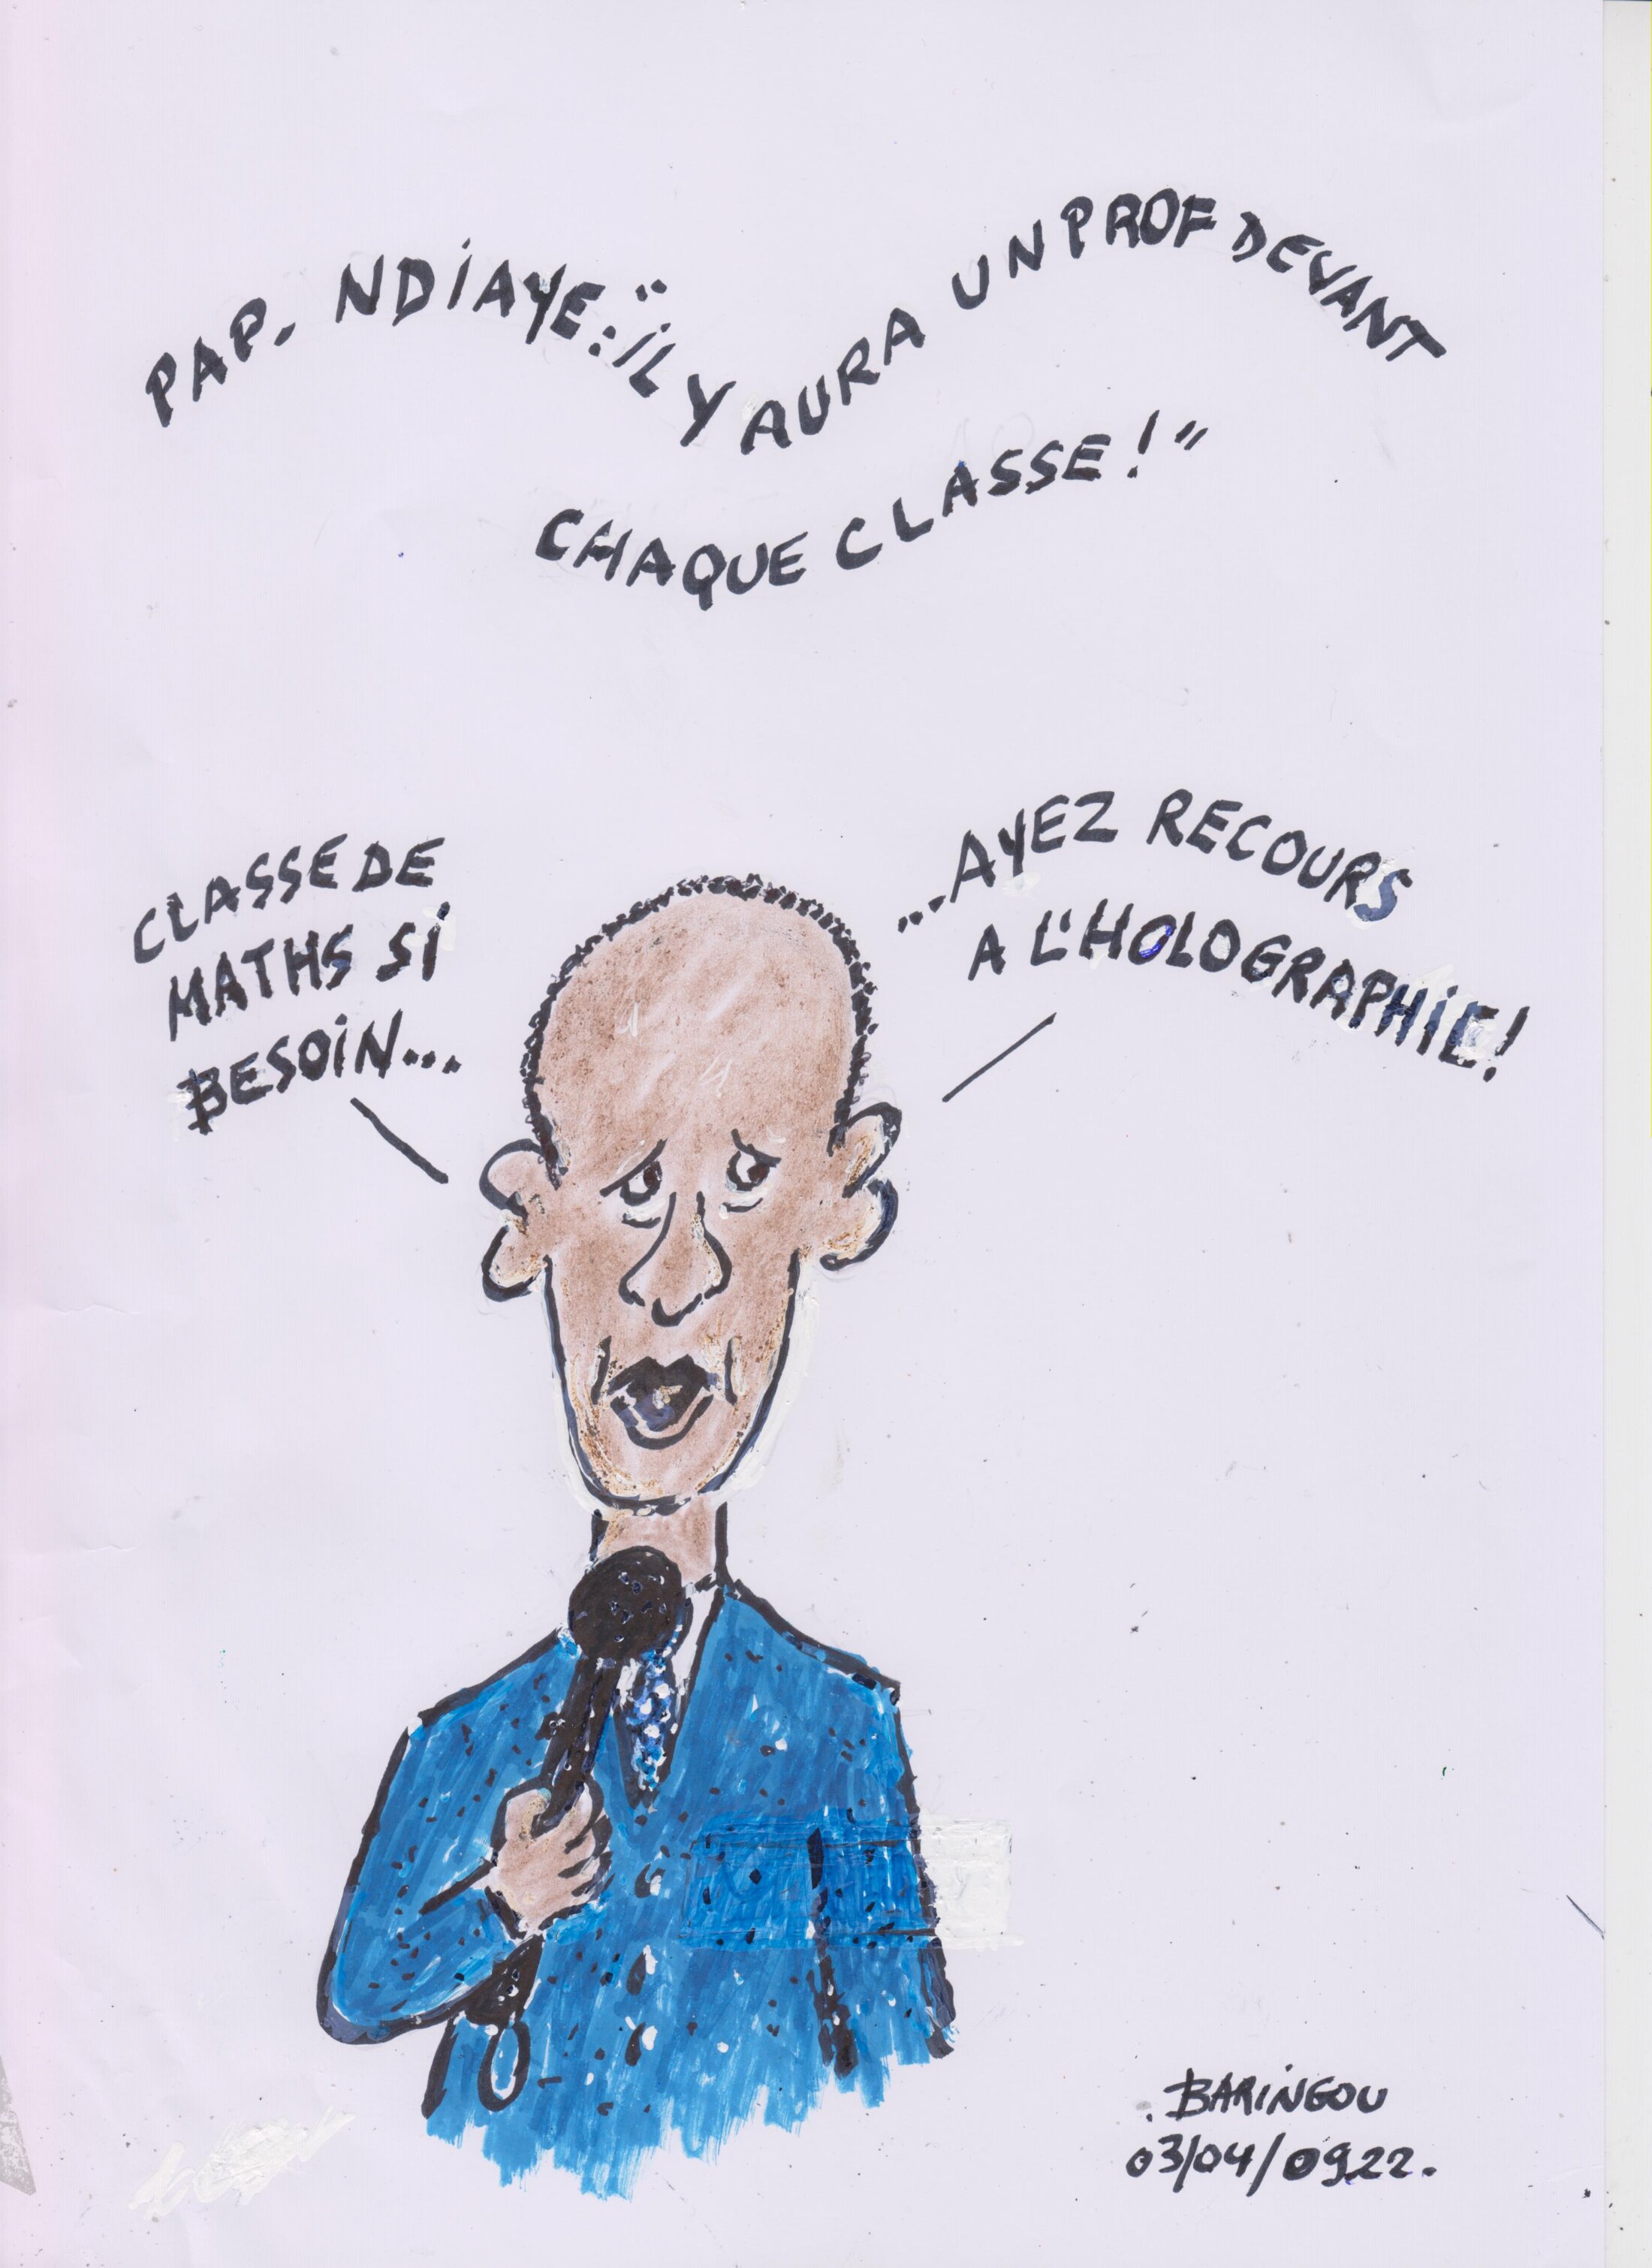 PAP. NDIAYE: "IL Y AURA UN PROF DEVANT
CHAQUE CLASSE!"
CLASSE DE
MATHS SI
BESOIN...
...AYEZ RECOURS
A L'HOLOGRAPHIE!
. BARINGOU
03/04/0922.